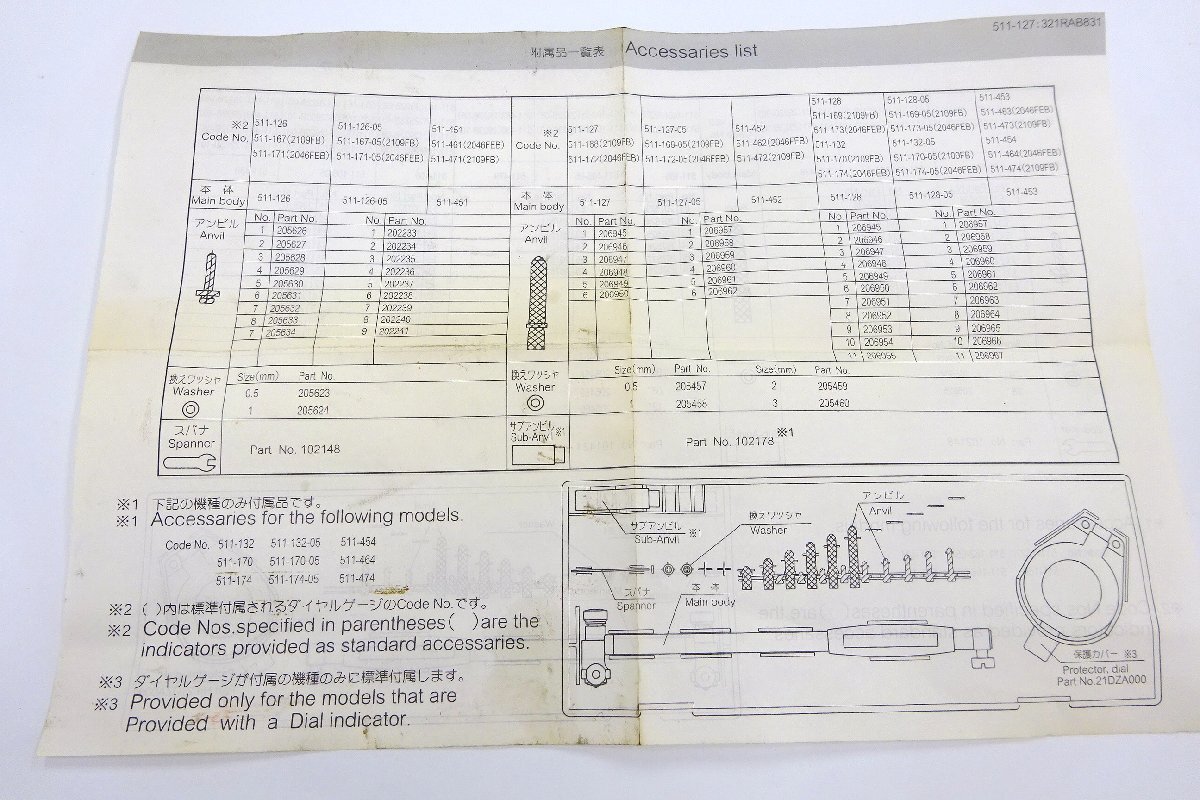 511-127:321RAB831
附属品一覧表 Accessaries list
※2 Code No.
511-126 511-126-05 511-451
511-167(2109FB) 511-167-05(2109FB) 511-461(2046FEB)
511-171(2046FEB) 511-171-05(2046FEB) 511-471(2109FB)
※2 Code No.
511-127 511-127-05 511-452
511-168(2109FB) 511-168-05(2109FB) 511-462(2046FEB)
511-172(2046FEB) 511-172-05(2046FEB) 511-472(2109FB)
511-128 511-128-05 511-453
511-169(2109FB) 511-169-05(2109FB) 511-463(2046FEB)
511-173(2046FEB) 511-173-05(2046FEB) 511-473(2109FB)
511-132 511-132-05 511-454
511-170(2109FB) 511-170-05(2109FB) 511-464(2046FEB)
511-174(2046FEB) 511-174-05(2046FEB) 511-474(2109FB)
本 体
Main body 511-126 511-126-05 511-451
本 体
Main body 511-127 511-127-05 511-452 511-128 511-128-05 511-453
アンビル
Anvil
No. Part No. No. Part No.
1 205626 1 202233
2 205627 2 202234
3 205628 3 202235
4 205629 4 202236
5 205630 5 202237
6 205631 6 202238
7 205632 7 202239
8 205633 8 202240
7 205634 9 202241
アンビル
Anvil
No. Part No. No. Part No.
1 206945 1 206957
2 206946 2 206958
3 206947 3 206959
4 206948 4 206960
5 206949 5 206961
6 206950 6 206962
No. Part No. No. Part No.
1 206945 1 206957
2 206946 2 206958
3 206947 3 206959
4 206948 4 206960
5 206949 5 206961
6 206950 6 206962
7 206951 7 206963
8 206952 8 206964
9 206953 9 206965
10 206954 10 206966
11 206955 11 206967
換えワッシャ
Washer
Size(mm) Part No.
0.5 205623
1 205624
換えワッシャ
Washer
Size(mm) Part No. Size(mm) Part No.
0.5 205457 2 205459
1 205458 3 205460
スパナ
Spanner
Part No. 102148
サブアンビル ※1
Sub-Anvil
Part No. 102178 ※1
※1 下記の機種のみ付属品です。
※1 Accessaries for the following models.
Code No. 511-132 511-132-05 511-454
511-170 511-170-05 511-464
511-174 511-174-05 511-474
※2 ( )内は標準付属されるダイヤルゲージのCode No.です。
※2 Code Nos.specified in parentheses( )are the
indicators provided as standard accessaries.
※3 ダイヤルゲージが付属の機種のみに標準付属します。
※3 Provided only for the models that are
Provided with a Dial indicator.
サブアンビル ※1
Sub-Anvil
換えワッシャ
Washer
アンビル
Anvil
スパナ
Spanner
本 体
Main body
保護カバー ※3
Protector, dial
Part No.21DZA000